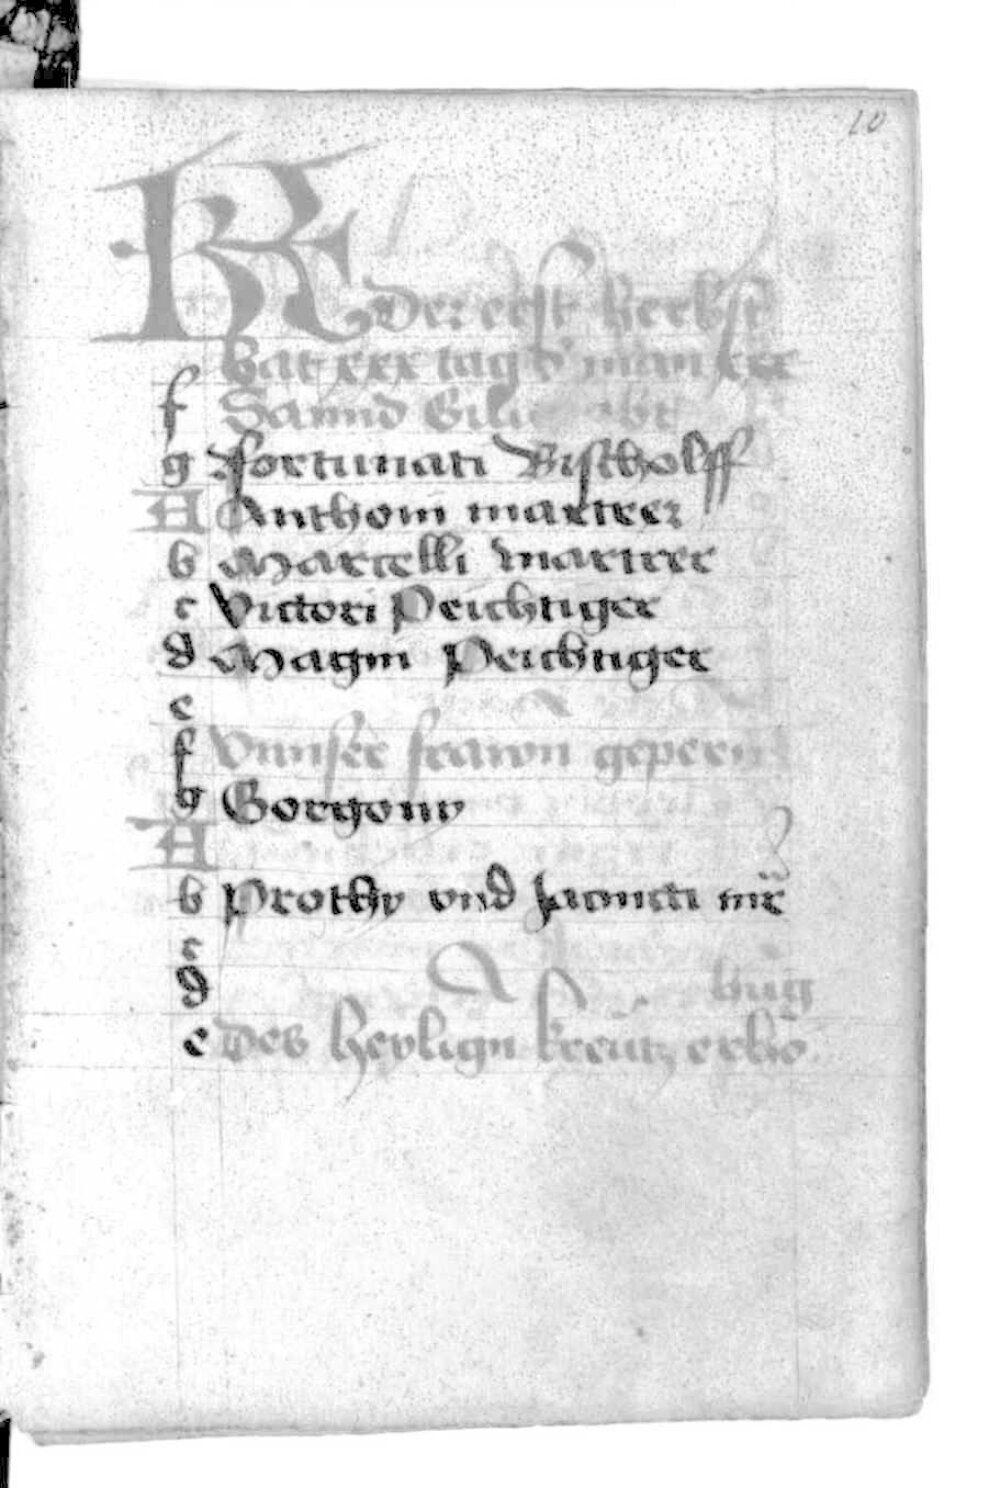 10
KL Der erst herbst
hat xxx tag d' man xxx
f Sannd Gilig abt
g Fortunati Bischolff
A Anthoni martrer
b Marcelli martrer
c Victori Peichtiger
d Magni Peichtiger
e
f Vnnser frawn gepern
g Gorgony
A
b Prothy vnd Jacincti mr
c
d bu̅g
e Des heylign kreutz erho